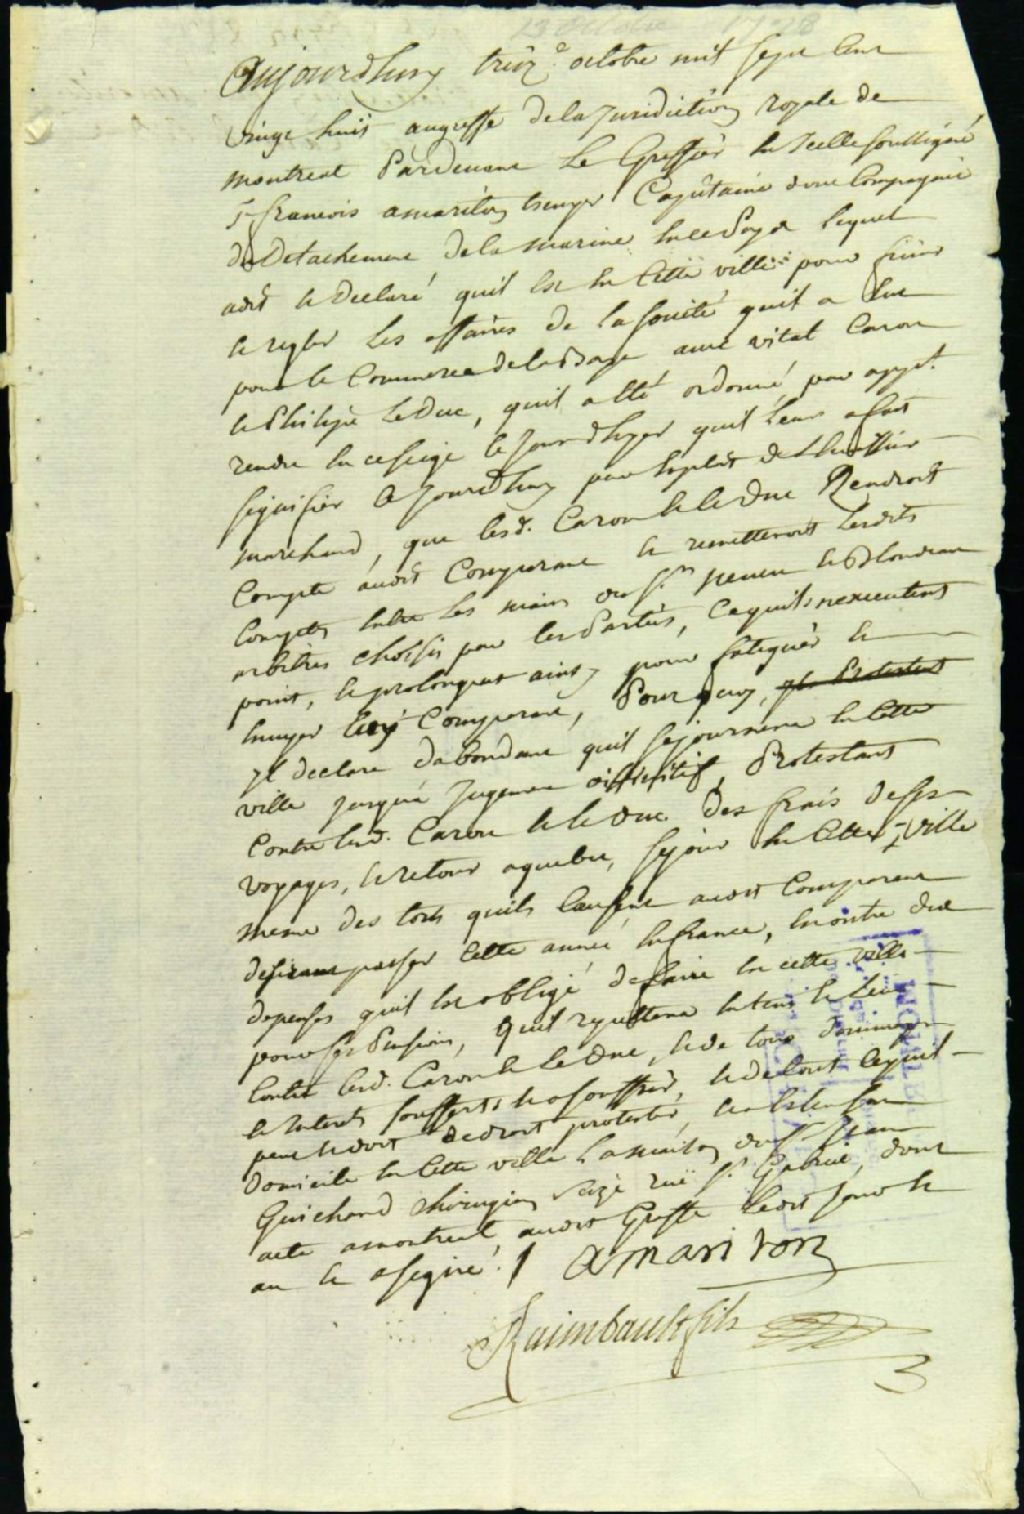 13 octobre 1728
Aujourdhuy treiz.e octobre mil sept cent
vingt huit augreffe de la Juridiction royale de
montreal Pardevant Le Greffier En Icelle soussigné
Sr françois amariton Ecuyer Capitaine dune Compagnie
du Detachement de la marine En ce Pays Lequel
adit et declaré quil Est En Cette ville pour finir
et regler Les affaires de La societé quil a Eue
pour le Commerce de la Baye avec vital Caron
et Philipe LeDuc, quil a Eté ordonné par appt.
rendu En ce siege le Jour dhyer quil Leur a fait
signifier Ce Jourdhuy par Exploit de Lhuissier
marchand, que lesd. Caron et le Duc Rendroit
Compte audit Comparant et remettroit Lesdits
Comptes Entre Les mains du Sr. neveu et Blondeau
arbitres choisis par les Parties, Ce quils nexecutent
point, et prolongent ainsy pour fatiguer et
Ennuyer Luy Comparant, Pour quoy, yl Protestent
yl declare dabondant quil sejournera En Cette
ville Jusqua Jugement diffinitif, Protestant
Contre lesd. Caron et le Duc des frais de ses
voyages, et retour aquebec, sejour En Cette ville
meme des torts quils Causent audit Comparant
desirant passer Cette année En france, En outre du
depenses quil Est obligé de faire En cette ville
pour ses Pension, quil repettera En tems et Lieu
Contre lesd. Caron et le Duc, et de tous dommages
et Interets soufferts et a souffrir, et de tout ce quil
peut et doit de droit protester, et a Elu son
domicile En Cette ville La maison du Sr. Jean
Guichard chirurgien size ruë St. Gabriel, dont
acte amontreal audit Greffe Lesdit Jour et
an et a signé .
amariton
Raimbault fils
3